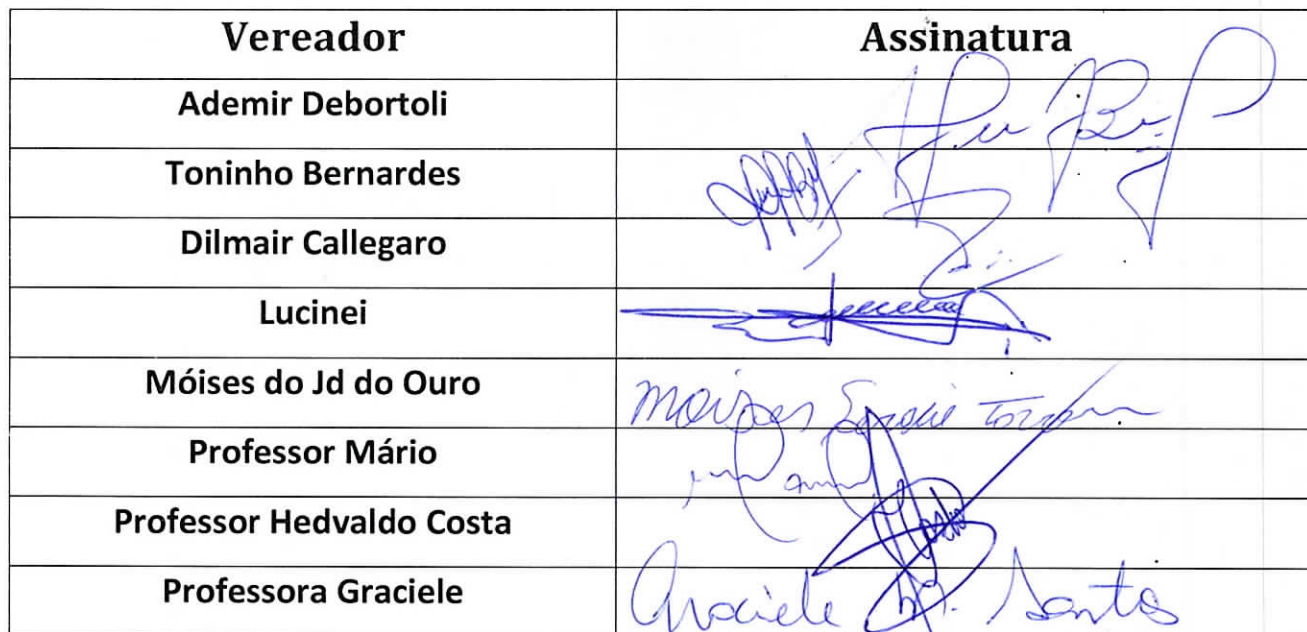 Vereador Assinatura
Ademir Debortoli
Toninho Bernardes
Dilmair Callegaro
Lucinei
Móises do Jd do Ouro Moizes
Professor Mário
Professor Hedvaldo Costa Costa
Professora Graciele Graciele M. Santos